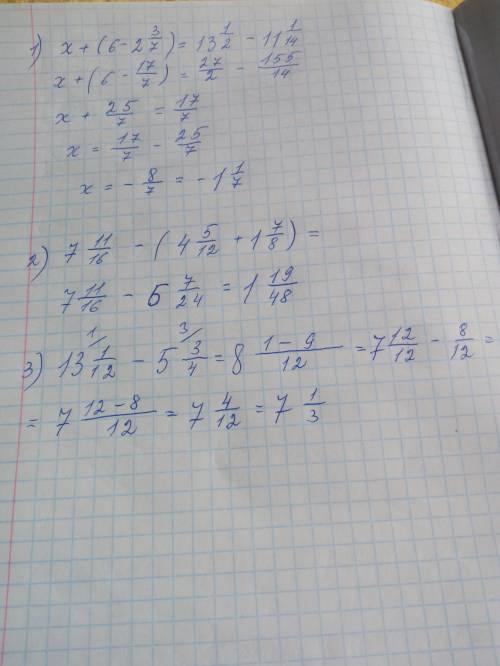 1) x + (6 - 2 3/7) = 13 1/2 - 11 1/14
x + (6 - 17/7) = 27/2 - 155/14
x + 25/7 = 17/7
x = 17/7 - 25/7
x = - 8/7 = - 1 1/7
2) 7 11/16 - (4 5/12 + 1 7/8) =
7 11/16 - 6 7/24 = 1 19/48
3) 13 1/12 - 5 3/4 = 8 (1 - 9)/12 = 7 12/12 - 8/12 =
1/ 3/
= 7 (12 - 8)/12 = 7 4/12 = 7 1/3